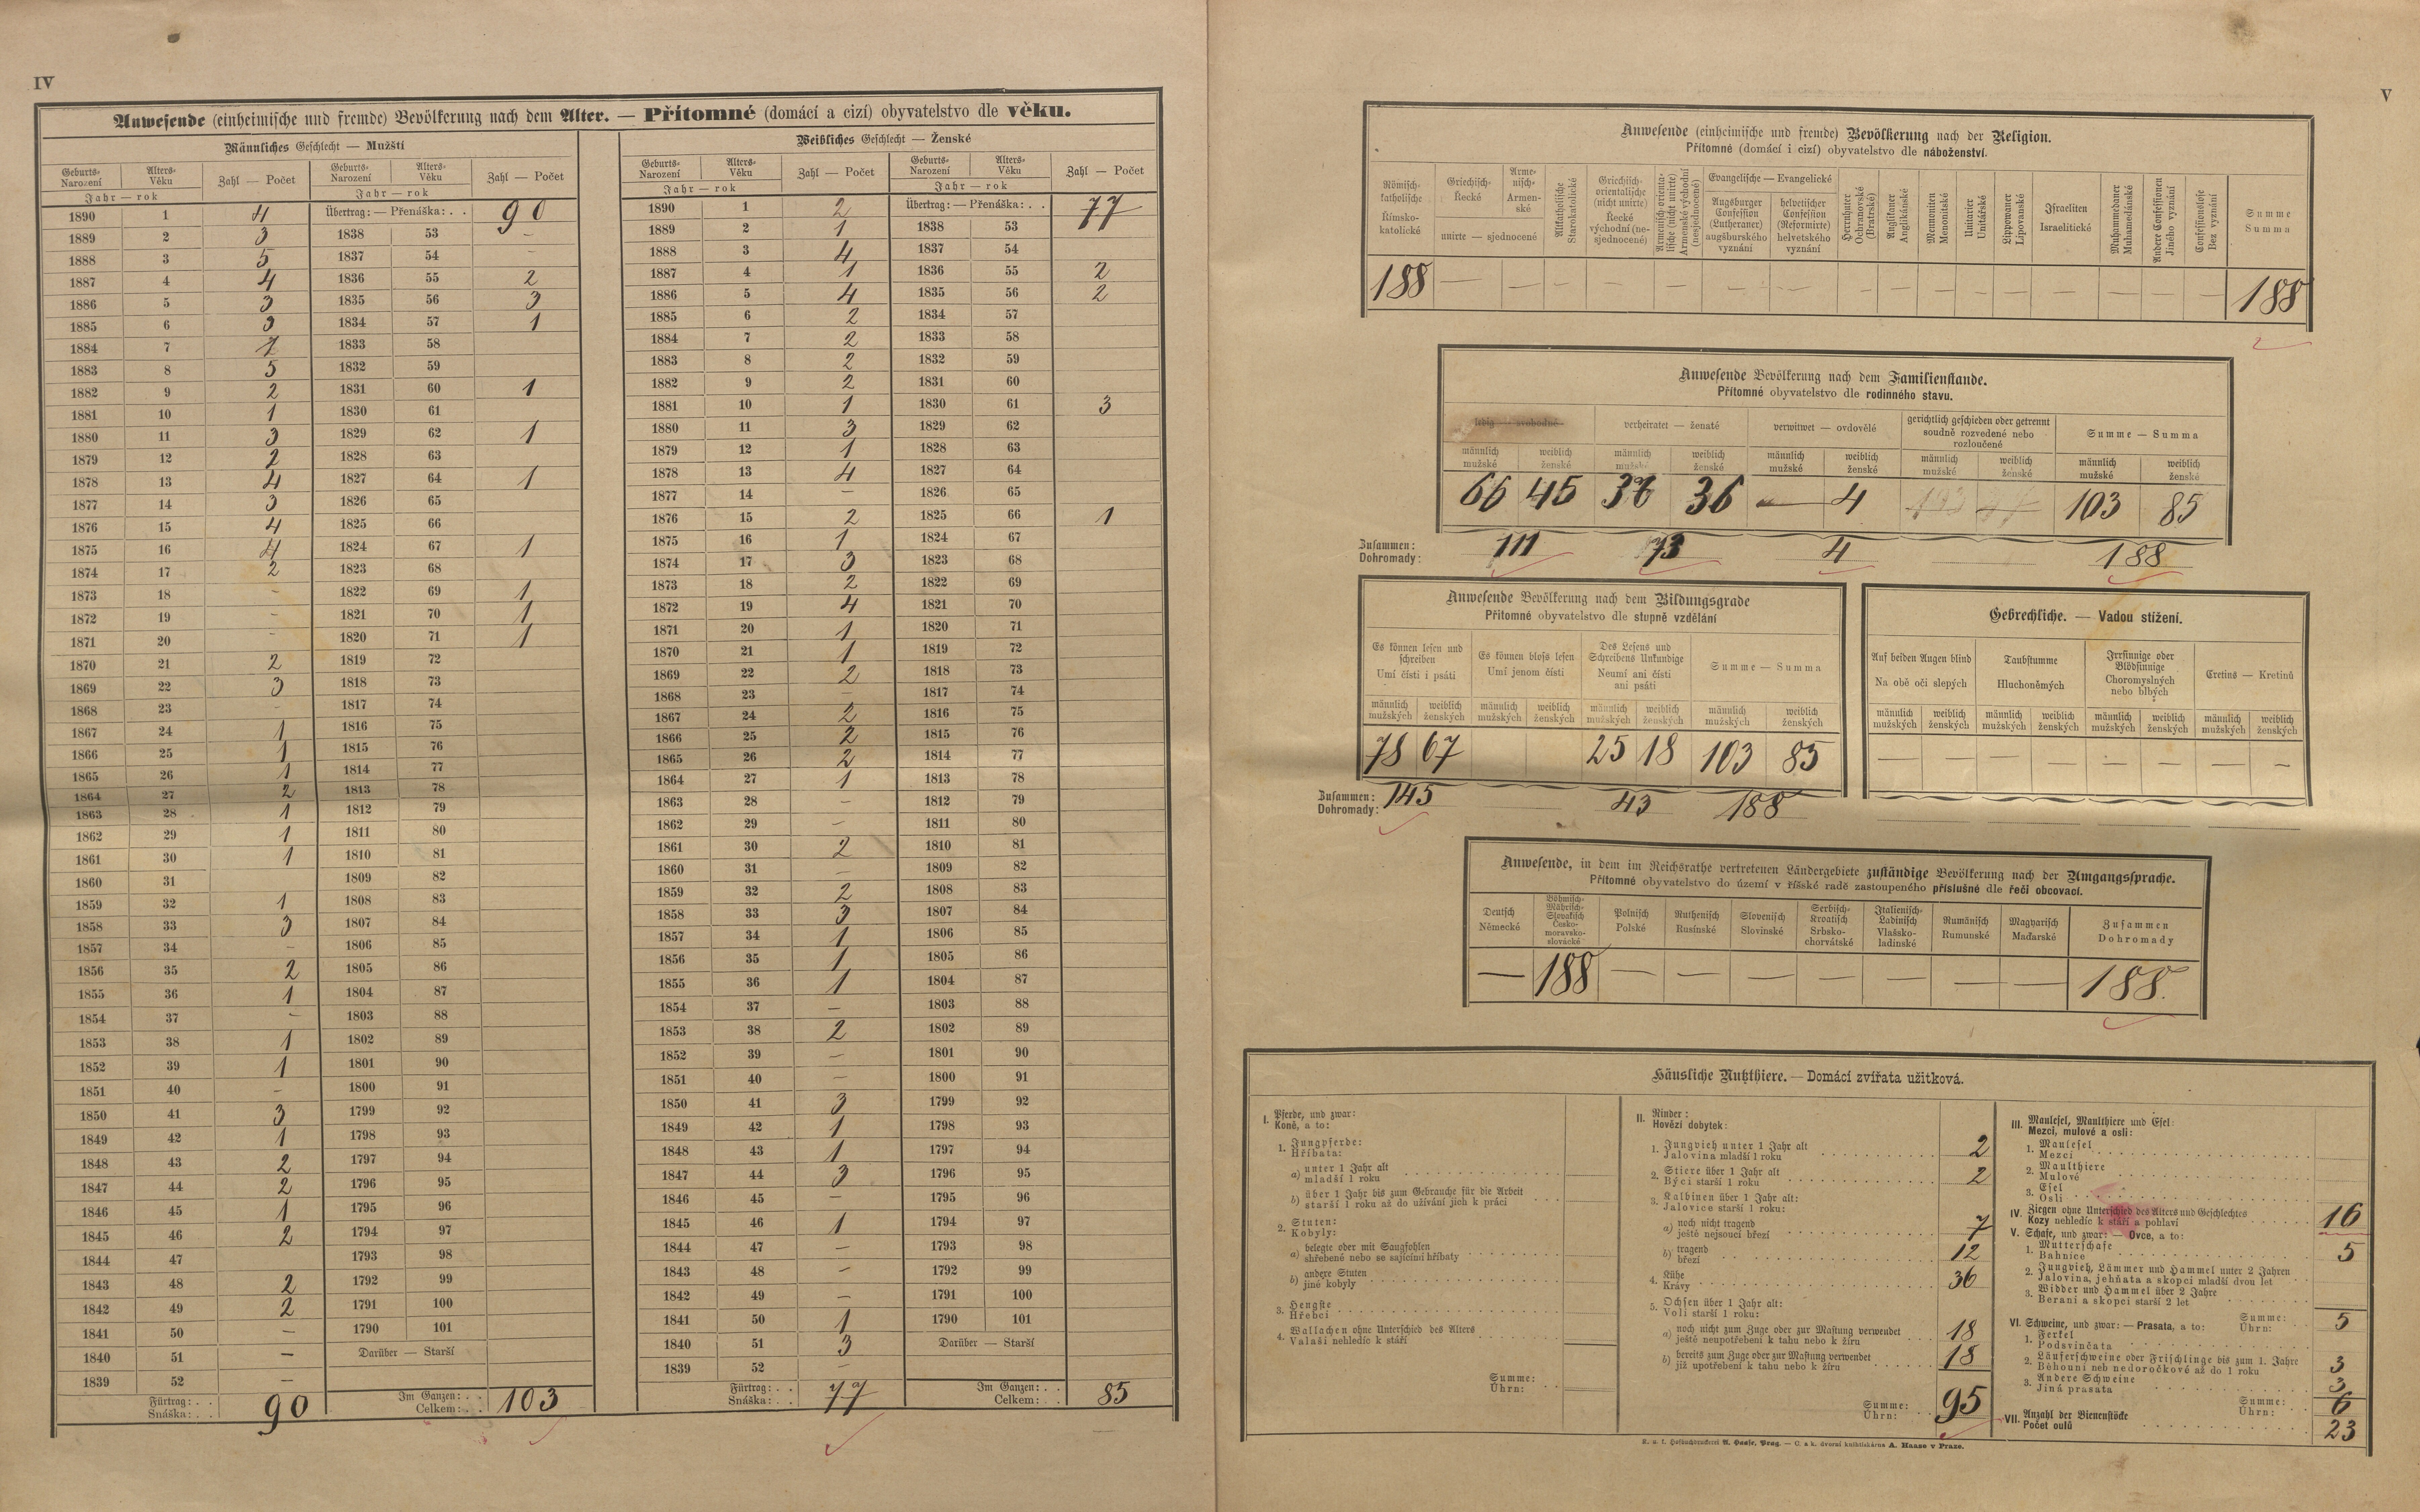 IV
Anwesende (einheimische und fremde) Bevölkerung nach dem Alter. — Přítomné (domácí a cizí) obyvatelstvo dle věku.
Männliches Geschlecht — Mužští
Geburts- Narození Alters- Věku Zahl — Počet Geburts- Narození Alters- Věku Zahl — Počet
Jahr — rok Jahr — rok
1890 1 4 Übertrag: — Přenáška: . . 90
1889 2 3 1838 53 —
1888 3 5 1837 54 —
1887 4 4 1836 55 2
1886 5 3 1835 56 3
1885 6 3 1834 57 1
1884 7 1833 58
1883 8 5 1832 59
1882 9 2 1831 60 1
1881 10 1 1830 61
1880 11 3 1829 62 1
1879 12 2 1828 63
1878 13 4 1827 64 1
1877 14 3 1826 65
1876 15 4 1825 66
1875 16 4 1824 67 1
1874 17 2 1823 68
1873 18 - 1822 69 1
1872 19 - 1821 70 1
1871 20 - 1820 71 1
1870 21 2 1819 72
1869 22 3 1818 73
1868 23 - 1817 74
1867 24 1 1816 75
1866 25 1 1815 76
1865 26 1 1814 77
1864 27 2 1813 78
1863 28 1 1812 79
1862 29 1 1811 80
1861 30 1 1810 81
1860 31 1809 82
1859 32 1 1808 83
1858 33 3 1807 84
1857 34 - 1806 85
1856 35 2 1805 86
1855 36 1 1804 87
1854 37 - 1803 88
1853 38 1 1802 89
1852 39 1 1801 90
1851 40 - 1800 91
1850 41 3 1799 92
1849 42 1 1798 93
1848 43 2 1797 94
1847 44 2 1796 95
1846 45 1 1795 96
1845 46 2 1794 97
1844 47 1793 98
1843 48 2 1792 99
1842 49 2 1791 100
1841 50 — 1790 101
1840 51 — Darüber — Starší
1839 52 —
Fürtrag: . . Snáška: . . 90 Im Ganzen: . . Celkem: . . 103
Weibliches Geschlecht — Ženské
Geburts- Narození Alters- Věku Zahl — Počet Geburts- Narození Alters- Věku Zahl — Počet
Jahr — rok Jahr — rok
1890 1 2 Übertrag: — Přenáška: . . 77
1889 2 1 1838 53
1888 3 4 1837 54
1887 4 1 1836 55 2
1886 5 4 1835 56 2
1885 6 2 1834 57
1884 7 2 1833 58
1883 8 2 1832 59
1882 9 2 1831 60
1881 10 1 1830 61 3
1880 11 3 1829 62
1879 12 1 1828 63
1878 13 4 1827 64
1877 14 — 1826 65
1876 15 2 1825 66 1
1875 16 1 1824 67
1874 17 3 1823 68
1873 18 2 1822 69
1872 19 4 1821 70
1871 20 1 1820 71
1870 21 1 1819 72
1869 22 2 1818 73
1868 23 — 1817 74
1867 24 2 1816 75
1866 25 2 1815 76
1865 26 2 1814 77
1864 27 1 1813 78
1863 28 — 1812 79
1862 29 — 1811 80
1861 30 2 1810 81
1860 31 — 1809 82
1859 32 2 1808 83
1858 33 3 1807 84
1857 34 1 1806 85
1856 35 1 1805 86
1855 36 1 1804 87
1854 37 — 1803 88
1853 38 2 1802 89
1852 39 — 1801 90
1851 40 — 1800 91
1850 41 3 1799 92
1849 42 1 1798 93
1848 43 1 1797 94
1847 44 3 1796 95
1846 45 — 1795 96
1845 46 1 1794 97
1844 47 — 1793 98
1843 48 — 1792 99
1842 49 — 1791 100
1841 50 1 1790 101
1840 51 3 Darüber — Starší
1839 52 —
Fürtrag: . . Snáška: . . 77 Im Ganzen: . . Celkem: . . 85
V
Anwesende (einheimische und fremde) Bevölkerung nach der Religion.
Přítomné (domácí i cizí) obyvatelstvo dle náboženství.
Römisch-katholische Římsko-katolické
Griechisch- Řecké
Armenisch- Armenské
unirte — sjednocené
Altkatholische Starokatolické
Griechisch-orientalische (nicht unirte) Řecké východní (nesjednocené)
Armenisch orientalische (nicht unirte) Arménské východní (nesjednocené)
Evangelische — Evangelické
Augsburger Confession (Lutheraner) augšburského vyznání
helvetischer Confession (Reformirte) helvetského vyznání
Herrnhuter Ochranovské (Bratrské)
Anglikaner Anglikánské
Mennoniten Menonitské
Unitarier Unitářské
Lippowaner Lipovanské
Israeliten Israelitické
Muhammedaner Muhamedánské
Andere Confessionen Jiného vyznání
Confessionslose Bez vyznání
Summe Summa
188 — — — — — — — — — — — — — — — — 188
Anwesende Bevölkerung nach dem Familienstande.
Přítomné obyvatelstvo dle rodinného stavu.
ledig — svobodné verheiratet — ženaté verwitwet — ovdovělé gerichtlich geschieden oder getrennt soudně rozvedené nebo rozloučené Summe — Summa
männlich mužské weiblich ženské männlich mužské weiblich ženské männlich mužské weiblich ženské männlich mužské weiblich ženské männlich mužské weiblich ženské
66 45 36 — 4 103 85
Zusammen: Dohromady: 111 73 4 188
Anwesende Bevölkerung nach dem Bildungsgrade
Přítomné obyvatelstvo dle stupně vzdělání
Es können lesen und schreiben Umí čísti i psáti
Es können bloss lesen Umí jenom čísti
Des Lesens und Schreibens Unkundige Neumí ani čísti ani psáti
Summe — Summa
männlich mužských weiblich ženských männlich mužských weiblich ženských männlich mužských weiblich ženských männlich mužských weiblich ženských
78 67 25 18 103 85
Zusammen: Dohromady: 145 43 188
Gebrechliche. — Vadou stížení.
Auf beiden Augen blind Na obě oči slepých
Taubstumme Hluchoněmých
Irrsinnige oder Blödsinnige Choromyslných nebo blbých
Cretins — Kretinů
männlich mužských weiblich ženských männlich mužských weiblich ženských männlich mužských weiblich ženských männlich mužských weiblich ženských
— — — — — — — —
Anwesende, in dem im Reichsrathe vertretenen Ländergebiete zuständige Bevölkerung nach der Umgangssprache.
Přítomné obyvatelstvo do území v říšské radě zastoupeného příslušné dle řeči obcovací.
Deutsch Německé
Böhmisch-Mährisch-Slovakisch Česko-moravsko-slovácké
Polnisch Polské
Ruthenisch Rusínské
Slovenisch Slovinské
Serbisch-Kroatisch Srbsko-chorvátské
Italienisch-Ladinisch Vlašsko-ladinské
Rumänisch Rumunské
Magyarisch Maďarské
Zusammen Dohromady
— 188 — — — — — — — 188
Häusliche Nutzthiere. — Domácí zvířata užitková.
I. Pferde, und zwar:
Koně, a to:
1. Jungpferde:
Hříbata:
a) unter 1 Jahr alt
mladší 1 roku
b) über 1 Jahr bis zum Gebrauche für die Arbeit
starší 1 roku až do užívání jich k práci
2. Stuten:
Kobyly:
a) belegte oder mit Saugfohlen
shřebené nebo se sajícími hříbaty
b) andere Stuten
jiné kobyly
3. Hengste
Hřebci
4. Wallachen ohne Unterschied des Alters
Valaši nehledíc k stáří
Summe:
Úhrn:
II. Rinder:
Hovězí dobytek:
1. Jungvieh unter 1 Jahr alt
Jalovina mladší 1 roku 2
2. Stiere über 1 Jahr alt
Býci starší 1 roku 2
3. Kalbinen über 1 Jahr alt:
Jalovice starší 1 roku:
a) noch nicht tragend
ještě nejsoucí březí 7
b) tragend
březí 12
4. Kühe
Krávy 36
5. Ochsen über 1 Jahr alt:
Voli starší 1 roku:
a) noch nicht zum Zuge oder zur Mastung verwendet
ještě neupotřebení k tahu nebo k žíru 18
b) bereits zum Zuge oder zur Mastung verwendet
již upotřebení k tahu nebo k žíru 18
Summe:
Úhrn: 95
III. Maulesel, Maulthiere und Esel:
Mezci, mulové a osli:
1. Maulesel
Mezci
2. Maulthiere
Mulové
3. Esel
Osli
IV. Ziegen ohne Unterschied des Alters und Geschlechtes
Kozy nehledíc k stáří a pohlaví 16
V. Schafe, und zwar: — Ovce, a to:
1. Mutterschafe
Bahnice 5
2. Jungvieh, Lämmer und Hammel unter 2 Jahren
Jalovina, jehňata a skopci mladší dvou let
3. Widder und Hammel über 2 Jahre
Berani a skopci starší 2 let
Summe:
Úhrn: 5
VI. Schweine, und zwar: — Prasata, a to:
1. Ferkel
Podsvinčata
2. Läuferschweine oder Frischlinge bis zum 1. Jahre
Běhouni neb nedoročkové až do 1 roku 3
3. Andere Schweine
Jiná prasata 3
Summe:
Úhrn: 6
VII. Anzahl der Bienenstöcke
Počet oulů 23
K. u. k. Hofbuchdruckerei A. Haase, Prag. — C. a k. dvorní knihtiskárna A. Haase v Praze.